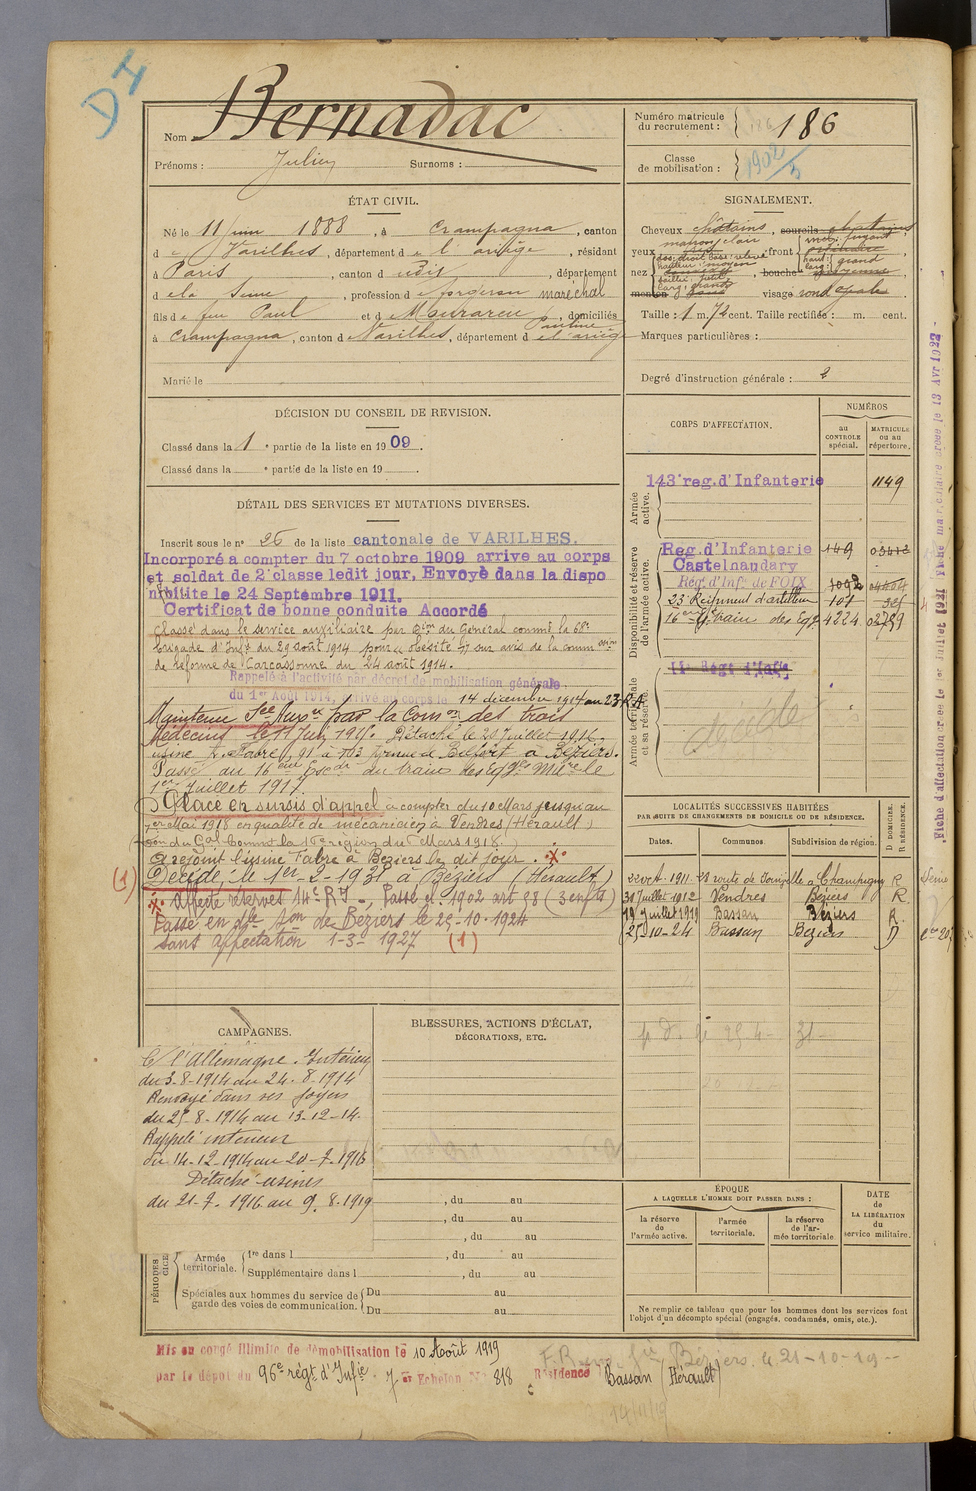 DI
Nom Bernadac
Prénoms : Julien Surnoms :
Numéro matricule du recrutement : 186
Classe de mobilisation : 1902/3
ÉTAT CIVIL.
Né le 11 juin 1888, à Crampagna, canton
de Varilhes, département de l'ariège, résidant
à Paris, canton d udit, département
d ela Seine, profession de forgeron maréchal
fils de feu Paul et d Maurareu, domiciliés
à Crampagna, canton de Varilhes, département d e l'ariège
même
Marié le
SIGNALEMENT.
Cheveux châtains, sourcils châtains,
yeux marron clair, front moy. fuyant
nez dos: droit base: relevé hauteur: moyen saillie: petit larg: grand, bouche haut: larg: grand moyenne
menton rond visage rond ovale
Taille : 1 m. 72 cent. Taille rectifiée : m. cent.
Marques particulières :
Degré d'instruction générale : 2
DÉCISION DU CONSEIL DE REVISION.
Classé dans la 1e partie de la liste en 1909.
Classé dans la e partie de la liste en 19 .
CORPS D'AFFECTATION.
NUMÉROS
au CONTROLE spécial.
MATRICULE ou au répertoire.
Armée active.
143e reg. d'Infanterie 1149
Disponibilité et réserve de l'armée active.
Reg. d'Infanterie 149 03412
Castelnaudary
Rég. d'Inf. de FOIX 1092 04404
23e Régiment d'artillerie 101 385
16e Esc. train des Eqp. 4224 02759
Armée territoriale et sa réserve.
décédé
DÉTAIL DES SERVICES ET MUTATIONS DIVERSES.
Inscrit sous le n° 26 de la liste cantonale de VARILHES.
Incorporé a compter du 7 octobre 1909 arrive au corps
et soldat de 2e classe ledit jour, Envoyé dans la dispo
nibilite le 24 Septembre 1911.
Certificat de bonne conduite Accordé
Classé dans le service auxiliaire par Don du Général commt la 68e
brigade d'Inft du 29 août 1914 pour obésité sur avis de la comm on
de réforme de Carcassonne du 24 août 1914.
Rappelé à l'activité par décret de mobilisation générale
du 1er Août 1914, arrivé au corps le 14 décembre 1914 au 23 R.A.
Maintenu Sce Auxre par la Comon des trois
Médecins le 11 Juin 1915. Détaché le 20 Juillet 1916
usine Fabre, 91 à 103 Avenue de Belfort à Béziers.
Passé au 16ème Escon du train des Eqges Mil.res le
1er Juillet 1917.
Placé en sursis d'appel à compter du 10 Mars jusqu'au
1er Mai 1918 en qualité de mécanicien à Vendres (Hérault)
Don du Gal Commt la 16e région du Mars 1918.
a rejoint l'usine Fabre à Béziers le dit jour. X
(1) Décédé, le 1er-2-1931 à Béziers (Hérault)
X Affecté réserves 14e R.I., Passé cl. 1902 art 58 (3 enfts)
Passé en dle Son de Béziers le 25-10-1924
sans affectation 1-3-1927 (1)
LOCALITÉS SUCCESSIVES HABITÉES
PAR SUITE DE CHANGEMENTS DE DOMICILE OU DE RÉSIDENCE.
Dates. Communes. Subdivision de région. D DOMICILE. R RÉSIDENCE.
22 oct. 1911 - 28 route de Joinville à Champigny R Seine
30 Juillet 1912 Vendres Béziers R
19 Juillet 1919 Bassan Béziers R.
25-10-24 Bassan Béziers D
CAMPAGNES.
C l'Allemagne. Intérieur
du 3-8-1914 au 24-8-1914
Renvoyé dans ses foyers
du 25-8-1914 au 13-12-14.
Rappelé intérieur
du 14-12-1914 au 20-7-1916
Détaché usines
du 21-7-1916 au 9.8-1919
BLESSURES, ACTIONS D'ÉCLAT,
DÉCORATIONS, ETC.
, du au
, du au
, du au
Armée territoriale. 1re dans l , du au
Supplémentaire dans l , du au
Spéciales aux hommes du service de garde des voies de communication. Du au
Du au
ÉPOQUE
A LAQUELLE L'HOMME DOIT PASSER DANS :
la réserve de l'armée active.
l'armée territoriale.
la réserve de l'armée territoriale
DATE de LA LIBÉRATION du service militaire.
Ne remplir ce tableau que pour les hommes dont les services font
l'objet d'un décompte spécial (engagés, condamnés, omis, etc.).
Mis en congé illimité de démobilisation le 10 Août 1919
par le dépôt du 96e régt d'Infie. 7e Echelon N° 818 Résidence Bassan (Hérault)
Béziers. le 21-10-19
Fiche d'affectation créée le 1er juillet 1921 Fiche matriculaire créée le 13 AVR 1922